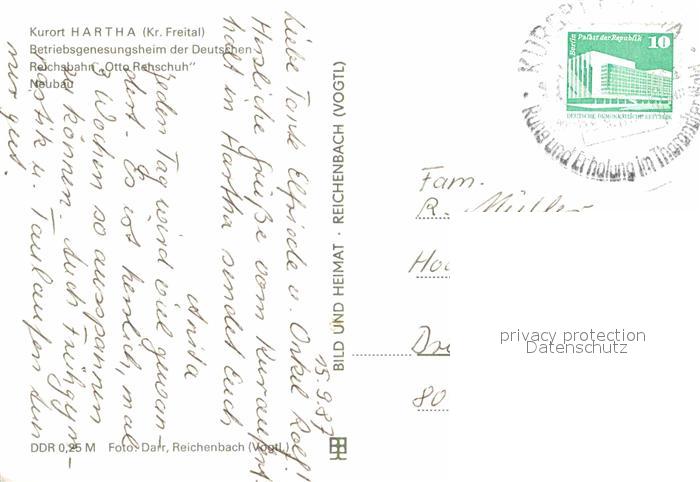 Kurort HARTHA (Kr. Freital)
Betriebsgenesungsheim der Deutschen
Reichsbahn „Otto Rehschuh"
Neubau
15.9.87
Liebe Tante Elfriede u. Onkel Rolf!
Herzliche Grüße vom Kuraufent-
halt in Hartha sendet Euch
Anita
Jeden Tag wird viel gewan-
dert. Es ist herrlich, mal
3 Wochen so ausspannen
zu können. Auch Frühgym-
nastik u. Taulaufen tun
nur gut.
DDR 0,25 M Foto: Darr, Reichenbach (Vogtl.)
BILD UND HEIMAT · REICHENBACH (VOGTL)
Berlin Palast der Republik
10
DEUTSCHE DEMOKRATISCHE REPUBLIK
KURORT
Ruhe und Erholung im Tharandter Wald
Fam.
R. Müller
Dre
80
privacy protection
Datenschutz